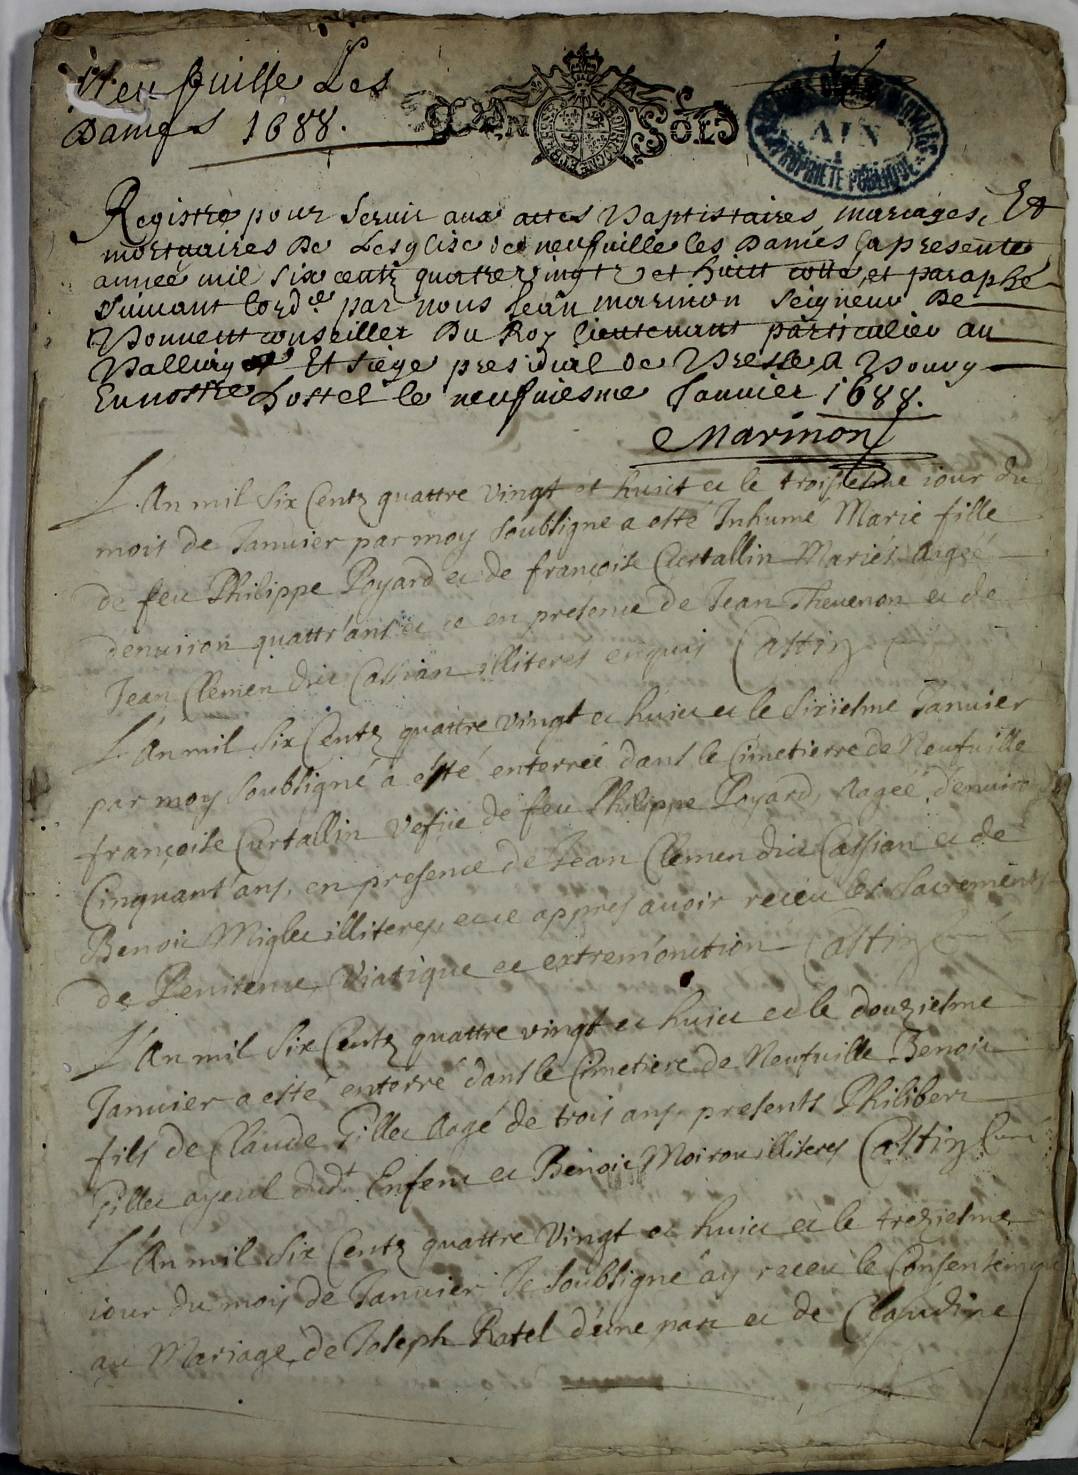 Neufuille Les
Dames 1688.
BRESSE BOURGOGNE
SOLS
ARCHIVES DÉPARTEMENTALES
AIN
PROPRIÉTÉ PUBLIQUE
Registre pour seruir aux actes Baptistaires, mariages, Et
mortuaires De Lesglise de neufuille les Dames la presente
année mil six centz quatre vingtz et huict cotté et paraphé
suiuant lord.e par nous Jean marinon Seigneur De
Bonnent conseiller Du Roy lieutenant particulier au
Balliage Et siege presidial de Bresse A Bourg
En nostre hostel le neufuiesme Januier 1688.
Marinon
L'An mil six Centz quattre vingt et huict et le troisiesme iour du
mois de Januier par moy soubsigné a esté Inhumé Marie fille
de feu Philippe Poyard et de françoise Curtallin Mariés aagée
d'enuiron quattr'ans et ce en presence de Jean Theuenon et de
Jean Clemen dict Cassian illiteres enquis Castin
L'An mil six Centz quattre vingt et huict et le sixiesme Januier
par moy soubsigné a esté enterrée dans le Cimetierre de Neufuille
françoise Curtallin vefue de feu Philippe Poyard, Aagée d'enuiron
Cinquant'ans, en presence de Jean Clemen dict Cassian et de
Benoit Miglet illiteres, et ce appres auoir receu les Sacrements
de Penitence, Viatique et extremonction Castin
L'An mil six Centz quattre vingt et huict et le douziesme
Januier a esté enterré dans le Cimetiere de Neufuille Benoit
fils de Claude Pillet Aagé de trois ans presents Philibert
Pillet ayeul dud.t Enfent et Benoit Moiroux illiteres Castin
L'An mil six Centz quattre Vingt et huict et le treziesme
iour du mois de Januier Je soubsigné ay receu le Consentement
au Mariage de Joseph Ratel d'une part et de Claudine